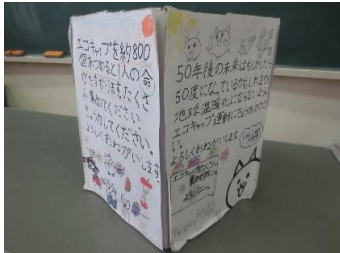 エコキャップを約800
個あつめると1人の命
がたすかります。たくさ
ん集めてください。
きょう力してください。
よろしくおねがいします!
50年後の未来はもしかしたら
50度になっているかもしれません
地球温暖化にならないよう
エコキャップ運動にきょう力してくださ
い。
よろしくおねがいします